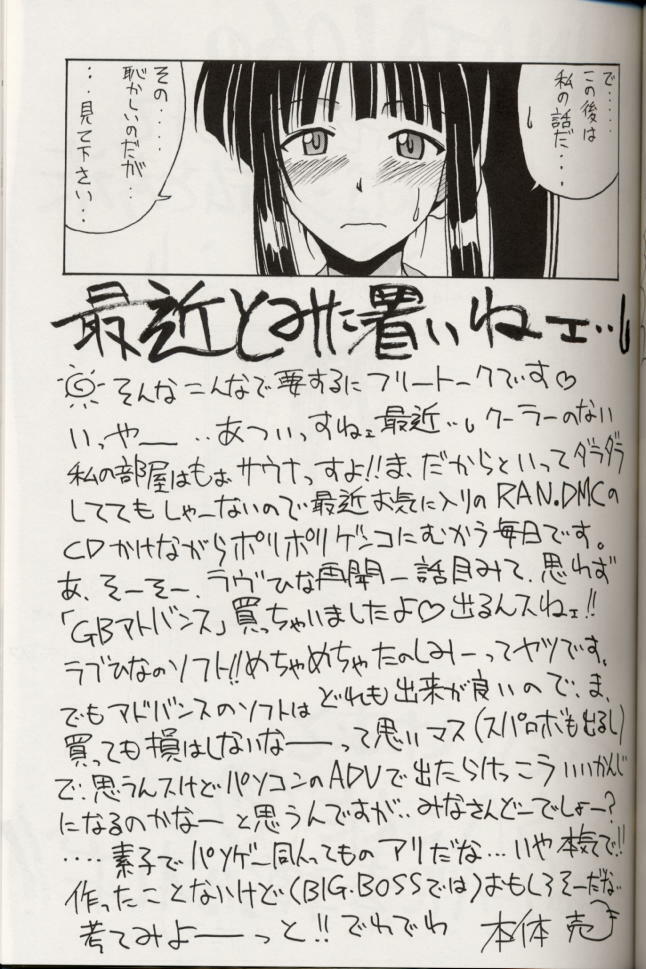 で・・・・
この後は
私の話だ・・・
その・・・・
恥かしいのだが・・
・・・見て下さい・・
最近とみに暑いねェ・・・
そんなこんなで要するにフリートークです♡
いっやー ・・あついっすねェ最近・・・クーラーのない
私の部屋はもぉサウナっすよ!!ま、だからといってダラダラ
しててもしゃーないので最近お気に入りのRAN.DMCの
CDかけながらポリポリゲンコにむかう毎日です。
あ、そーそー、ラヴひな再開一話目みて、思わず
「GBアドバンス」買っちゃいましたよ♡出るんスねェ!!
ラブひなのソフト!!めちゃめちゃたのしみーってヤツです。
でもアドバンスのソフトはどれも出来が良いので、ま、
買っても損はしないなーーって思いマス(スパロボも出るし)
で、思うんスけどパソコンのADVで出たらけっこういいかんじ
になるのかなーと思うんですが・・みなさんどーでしょー?
・・・・素子でパソゲー同人ってものアリだな・・・いや本気で!!
作ったことないけど(BIG.BOSSでは)おもしろそーだな
考てみよーーっと!!でわでわ 本体 売